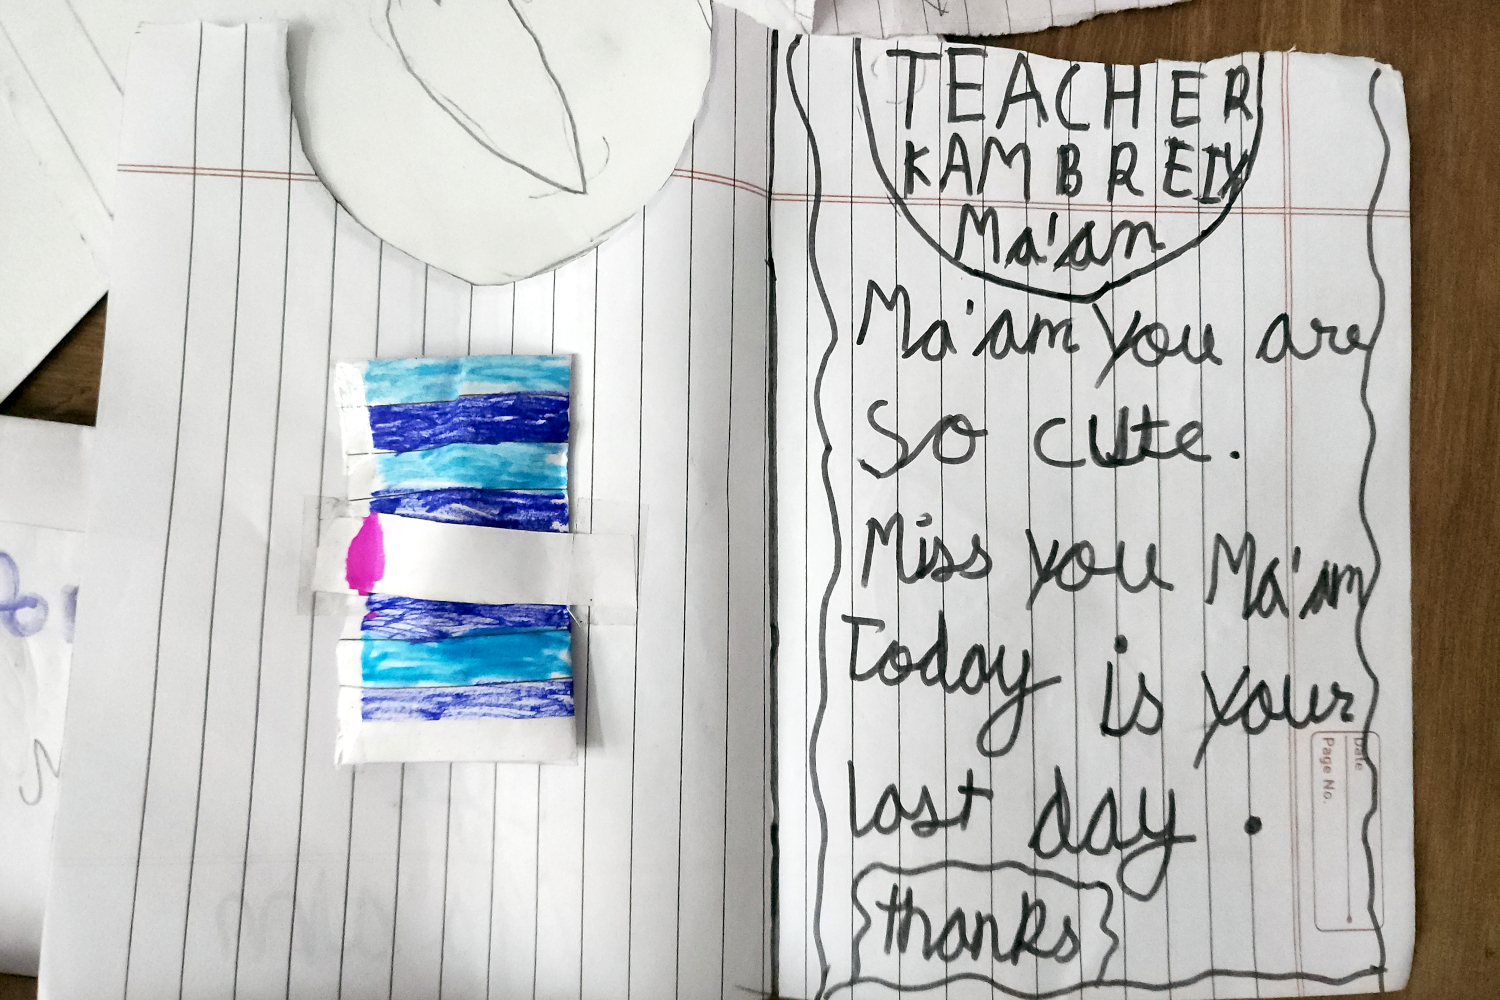 TEACHER
KAMBREIY
Ma'am
Ma'am you are
So cute.
Miss you Ma'am
Today is your
last day.
thanks
Date
Page No.